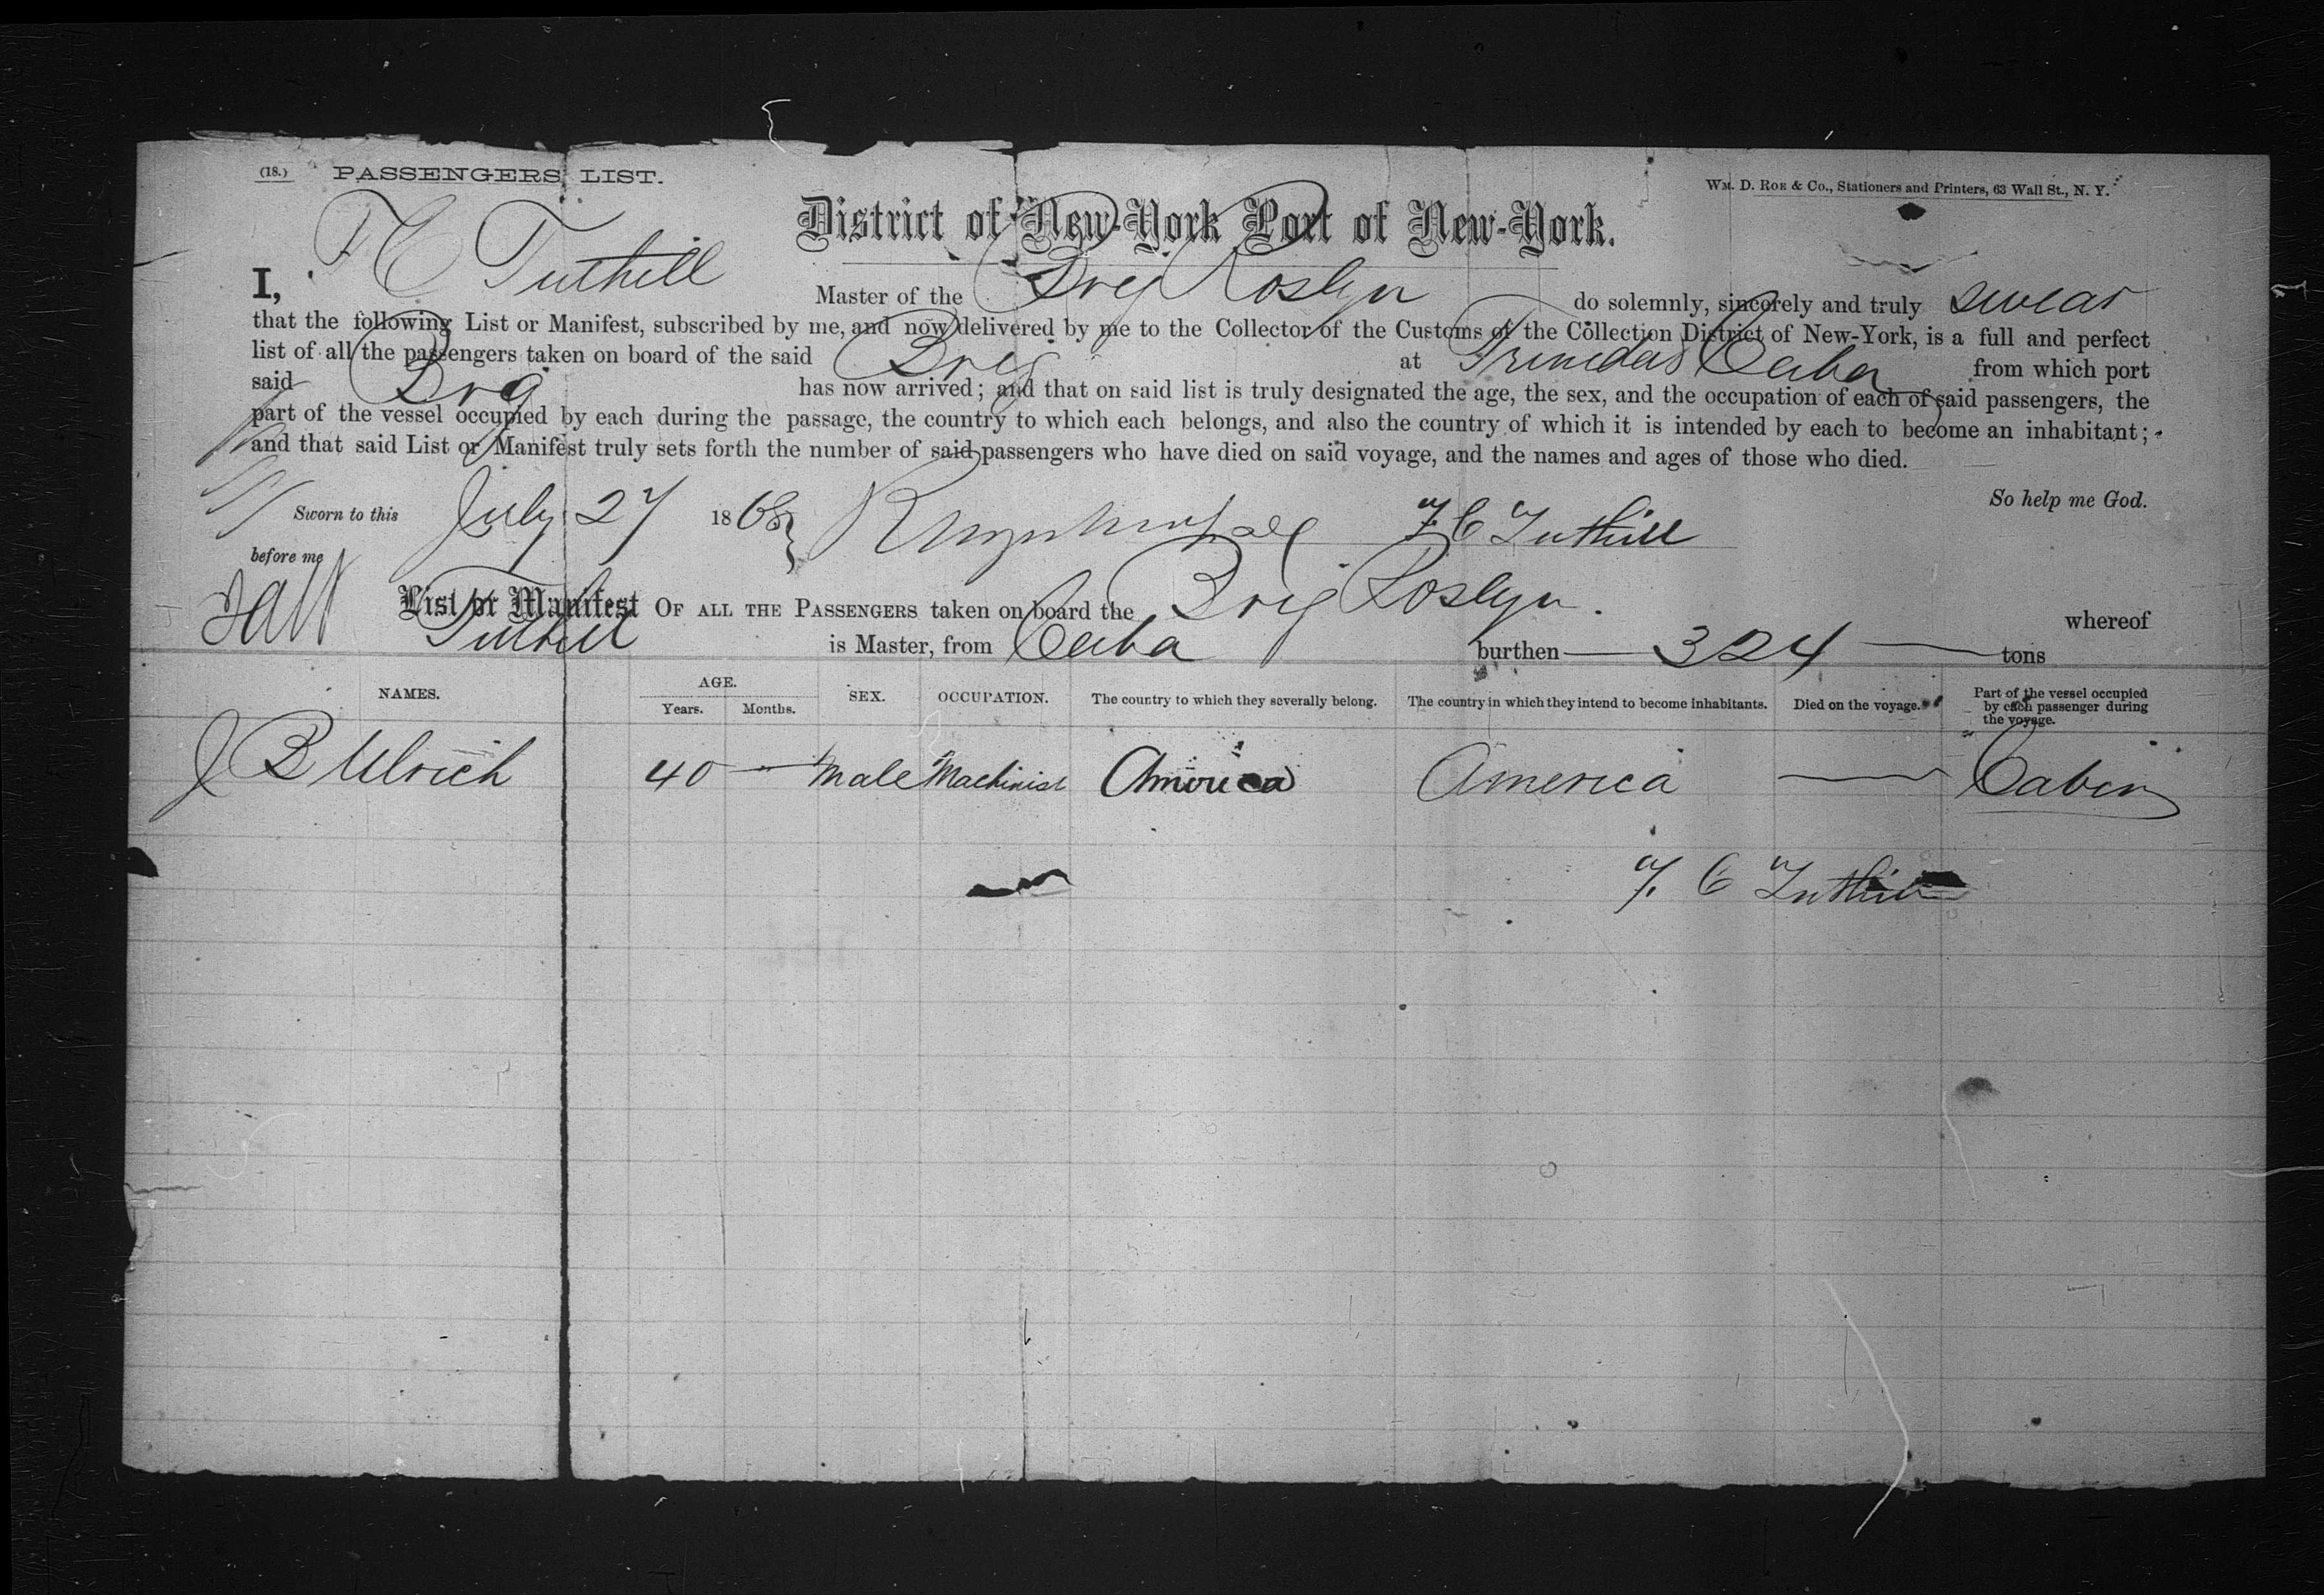 (18.) PASSENGERS LIST.
WM. D. ROE & Co., Stationers and Printers, 63 Wall St., N. Y.
District of New-York Port of New-York.
I, T C Tuthill Master of the Brig Roslyn do solemnly, sincerely and truly swear
that the following List or Manifest, subscribed by me, and now delivered by me to the Collector of the Customs of the Collection District of New-York, is a full and perfect
list of all the passengers taken on board of the said Brig at Trinidad Cuba from which port
said Brg has now arrived; and that on said list is truly designated the age, the sex, and the occupation of each of said passengers, the
part of the vessel occupied by each during the passage, the country to which each belongs, and also the country of which it is intended by each to become an inhabitant;
and that said List or Manifest truly sets forth the number of said passengers who have died on said voyage, and the names and ages of those who died.
So help me God.
Sworn to this July 27 1868 T C Tuthill
before me
List or Manifest OF ALL THE PASSENGERS taken on board the Brig Roslyn. whereof
Tuthill is Master, from Cuba burthen 324 tons
NAMES. AGE. Years. Months. SEX. OCCUPATION. The country to which they severally belong. The country in which they intend to become inhabitants. Died on the voyage. Part of the vessel occupied by each passenger during the voyage.
J B Ulrich 40 — Male Machinist America America — Cabin
T. C Tuthill